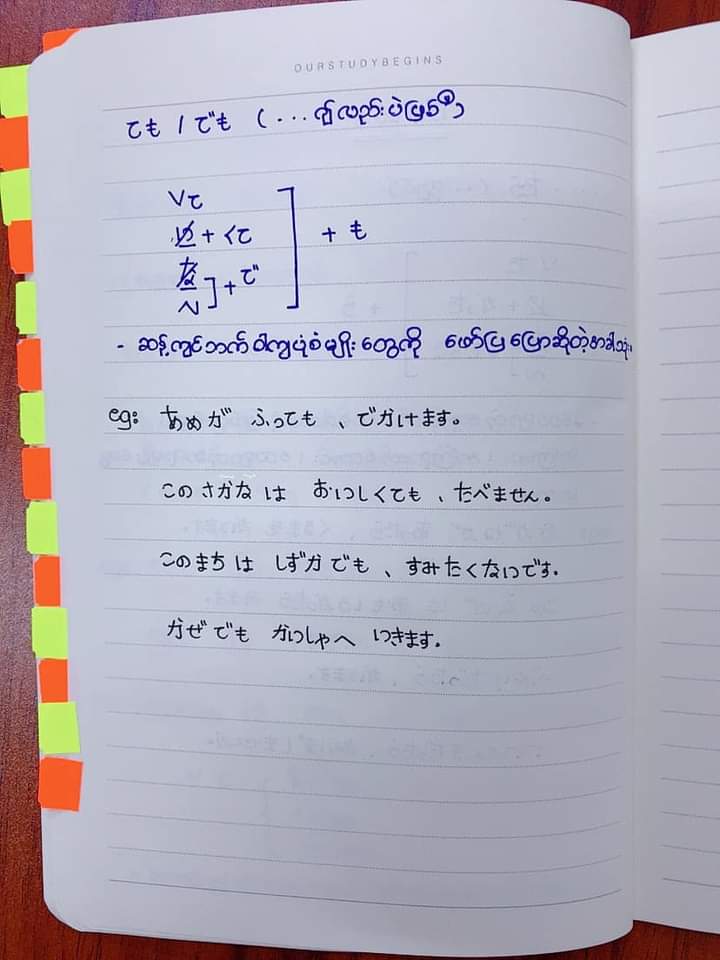 OURSTUDYBEGINS
ても / でも (...လျှင်လည်းပဲဖြစ်ဖြစ်)
Vて
い + くて
な
N ] + で
+ も
- ဆန့်ကျင်ဘက် ဝါကျပုံစံမျိုးတွေကို ဖော်ပြပြောဆိုတဲ့အခါသုံး။
eg: あめが ふっても、でかけます。
このさかなは おいしくても、たべません。
このまちは しずかでも、すみたくないです。
かぜでも かいしゃへ いきます。